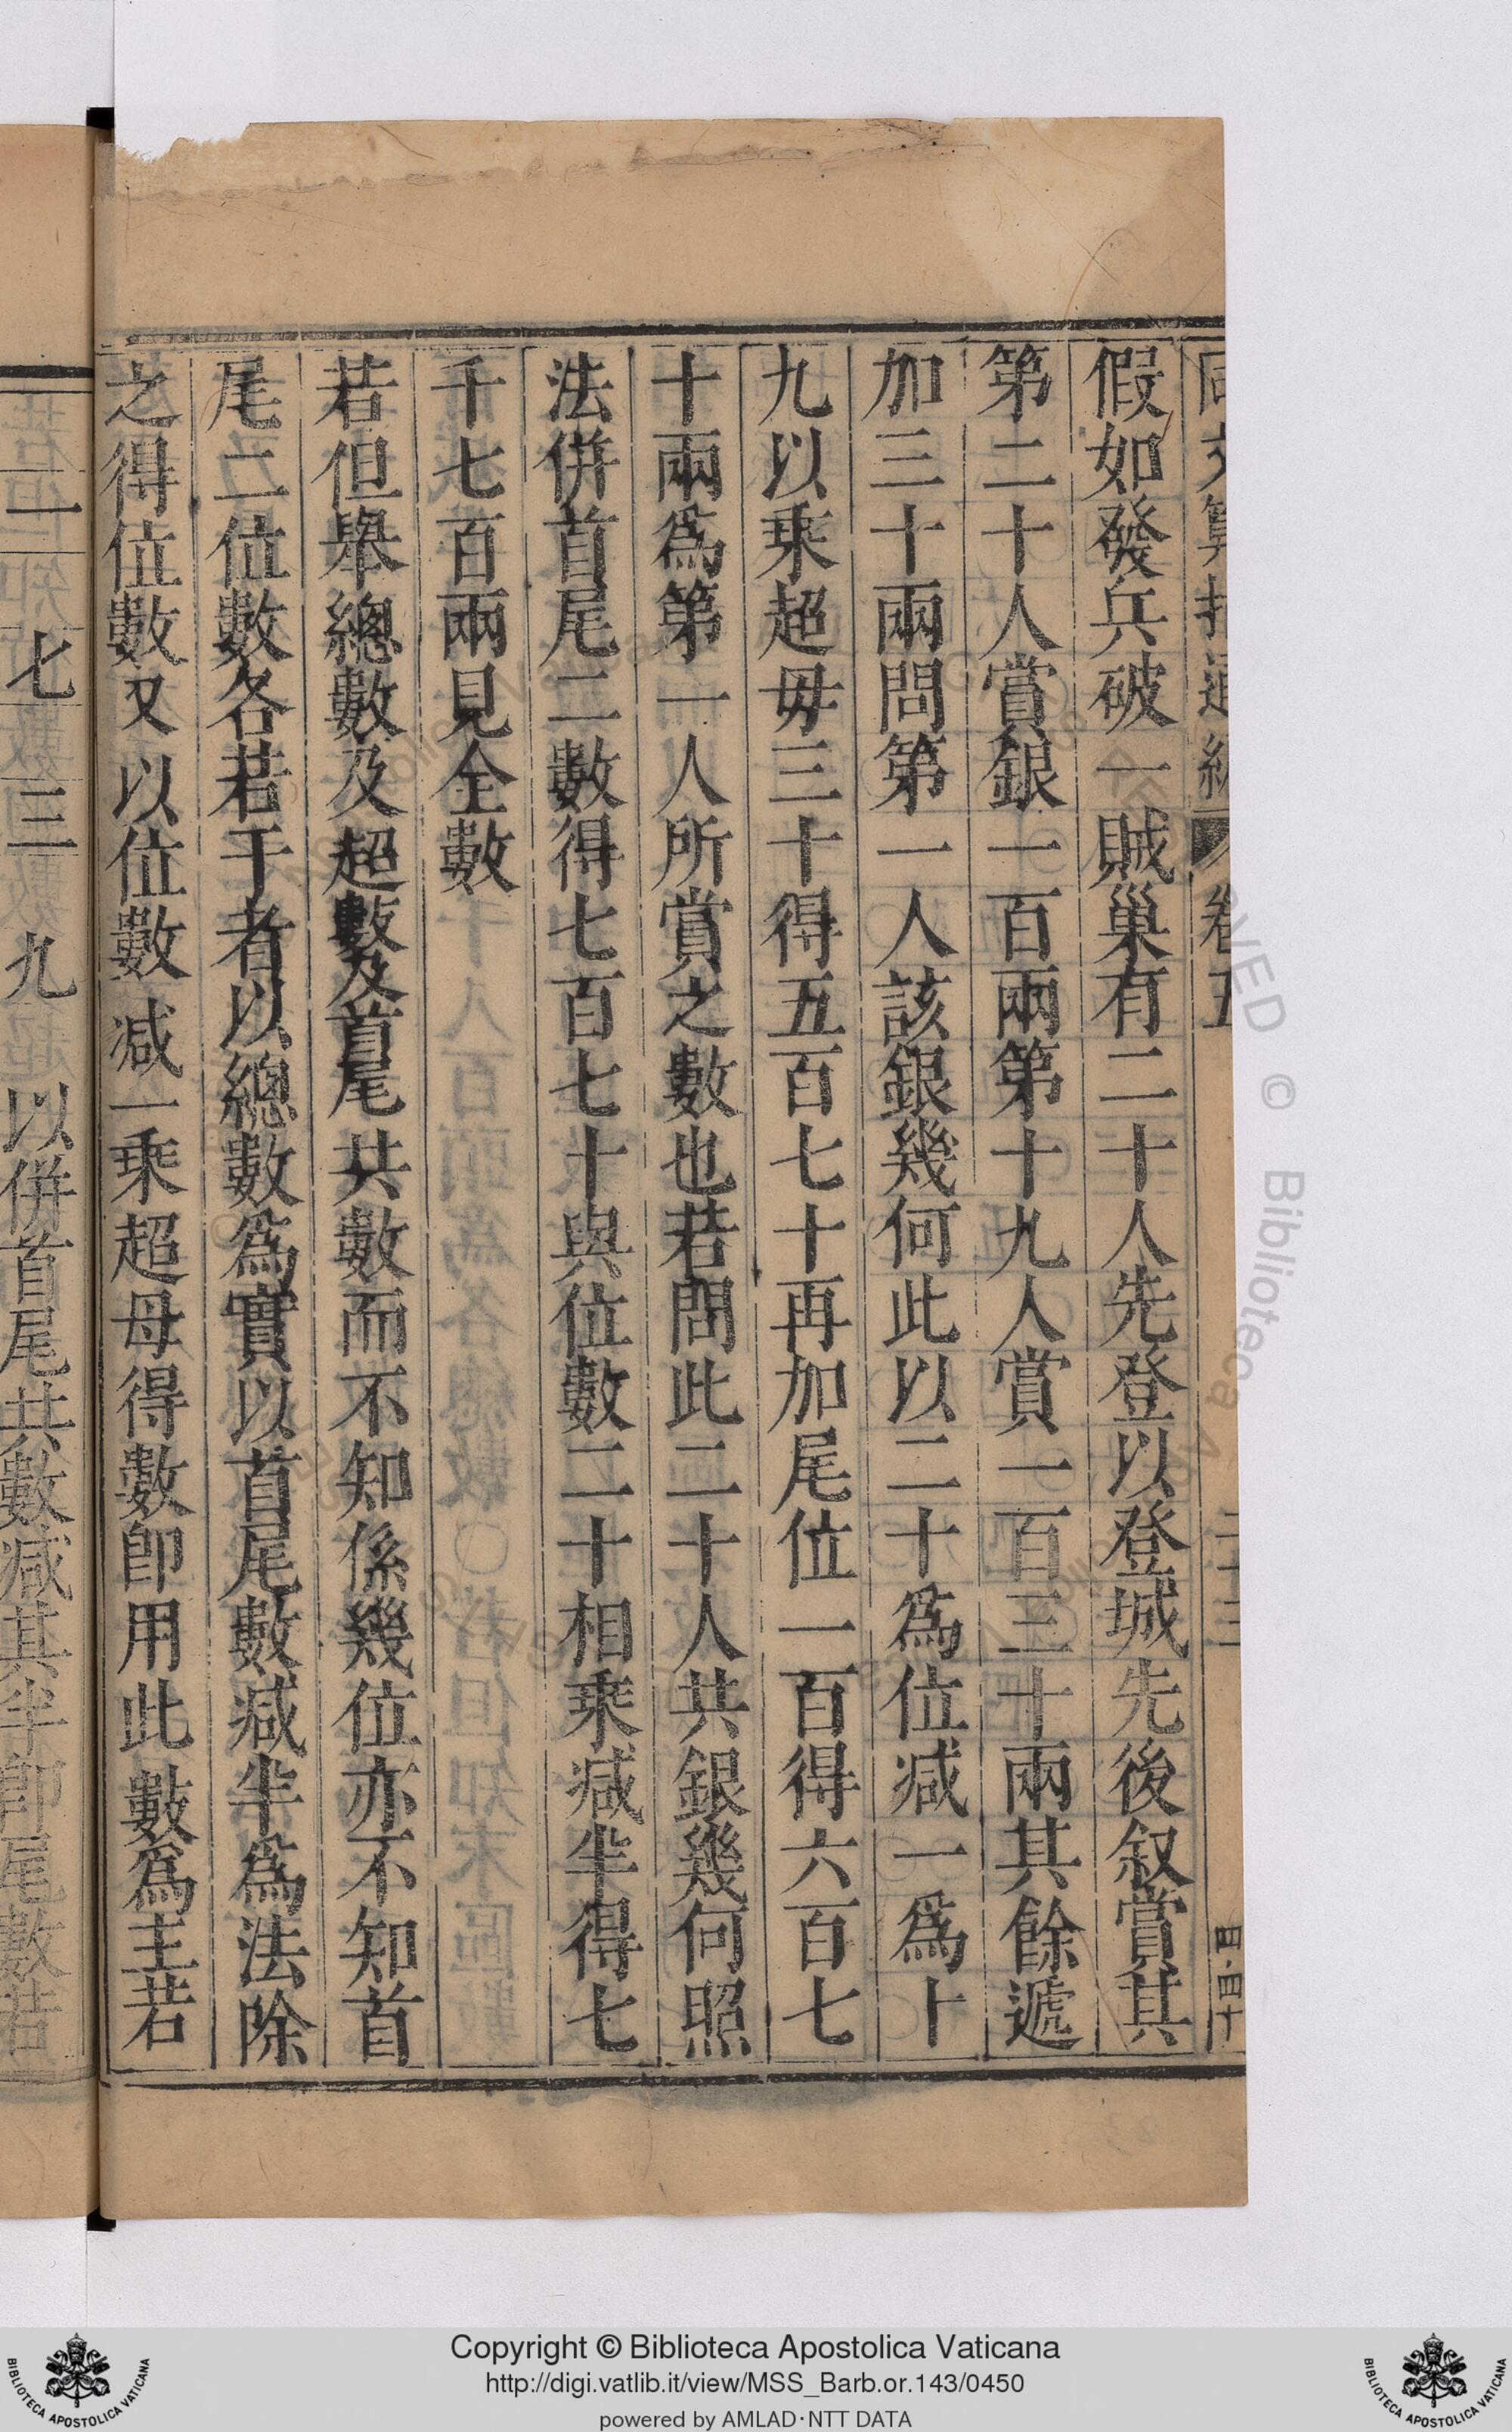 假如發兵破一賊巢有二十人先登以登城先後叙賞其
第二十人賞銀一百兩第十九人賞一百三十兩其餘遞
加三十兩問第一人該銀幾何此以二十為位减一為十
九以乘超毋三十得五百七十再加尾位一百得六百七
十兩為第一人所賞之數也若問此二十人共銀幾何照
法併首尾二數得七百七十與位數二十相乘减半得七
千七百兩見全數
若但舉總數及超數及首尾共數而不知係幾位亦不知首
尾二位數各若干者以總數為實以首尾數减半為法除
之得位數又以位數减一乘超母得數即用此數為主若
一 七 三 九 以併首尾共數减其半即尾數若
Copyright © Biblioteca Apostolica Vaticana
http://digi.vatlib.it/view/MSS_Barb.or.143/0450
powered by AMLAD·NTT DATA
BIBLIOTECA APOSTOLICA VATICANA
BIBLIOTECA APOSTOLICA VATICANA